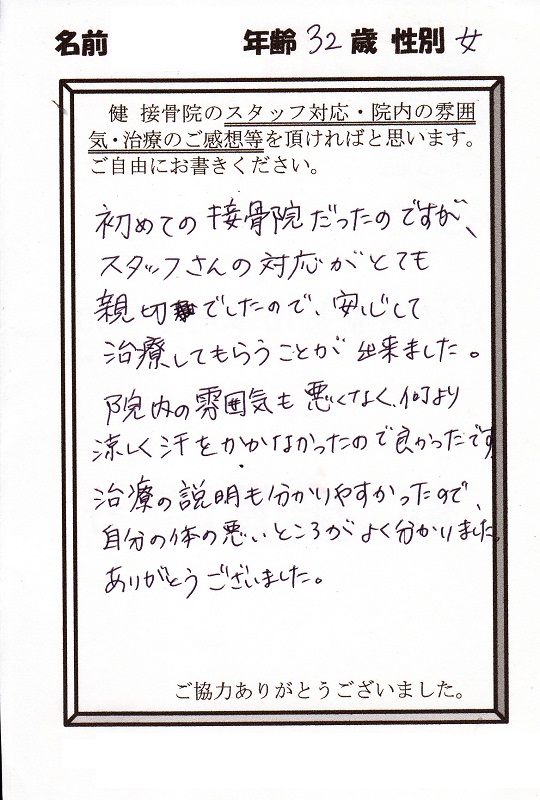 名前 年齢 32 歳 性別 女
健 接骨院のスタッフ対応・院内の雰囲
気・治療のご感想等を頂ければと思います。
ご自由にお書きください。
初めての接骨院だったのですが、
スタッフさんの対応がとても
親切でしたので、安心して
治療してもらうことが出来ました。
院内の雰囲気も悪くなく、何より
涼しく汗をかかなかったので良かったです
治療の説明も分かりやすかったので、
自分の体の悪いところがよく分かりました。
ありがとうございました。
ご協力ありがとうございました。